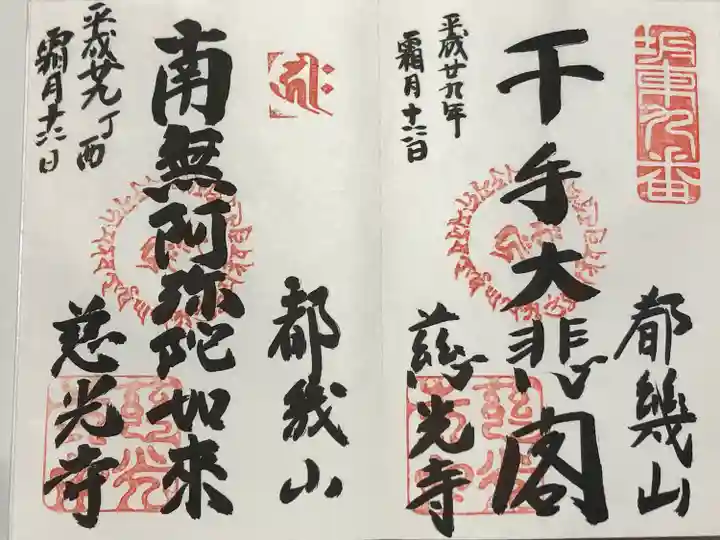 坂東九番
都幾山
千手大悲閣
慈光寺
平成廿九年
霜月十六日
都幾山
南無阿弥陀如来
慈光寺
平成廿九丁酉
霜月十六日
慈光
慈光